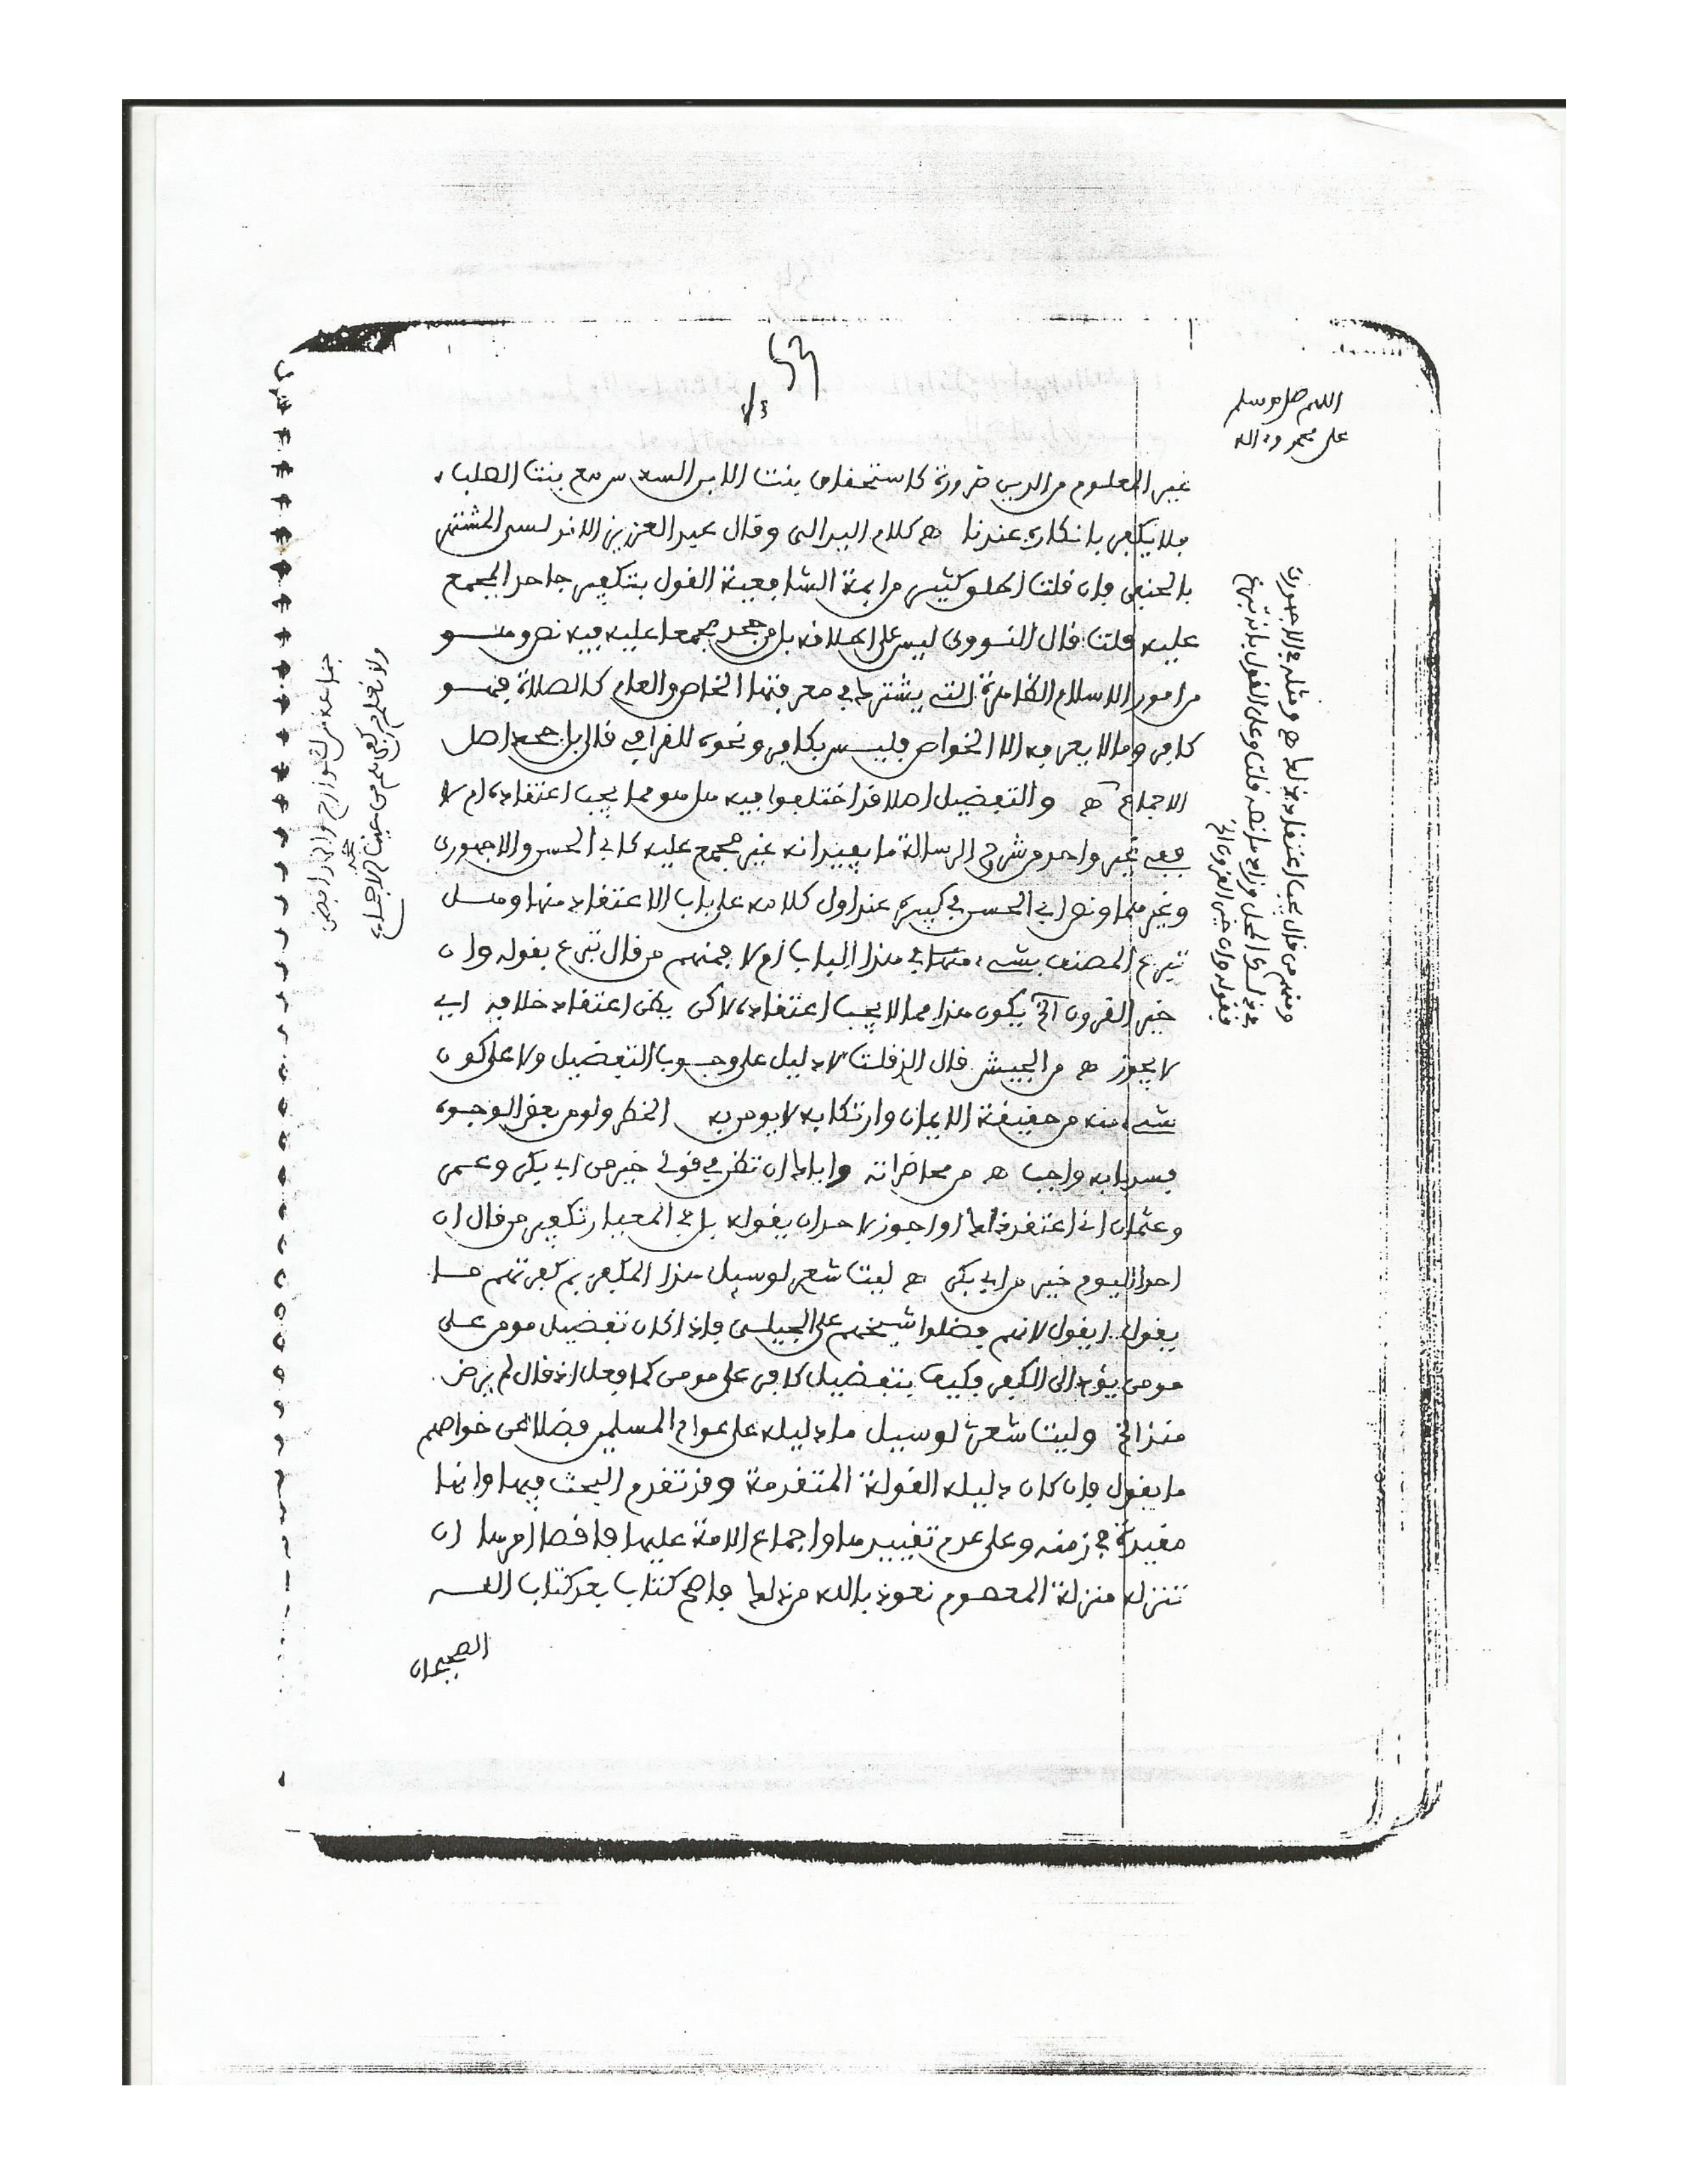 اللهم صل وسلم
على محمد وءاله
غير المعلوم من الدين ضرورة كاستحقاق بنت الابن السدس مع بنت الصلب
فلا يكفر بانكاره عندنا هـ كلام البرالى وقال عبد العزيز الاندلسى المشتهر
بالحنفى فان قلت اطلق كثير من ايمة الشافعية القول بتكفير جاحد المجمع
عليه قلت قال النووى ليس على اطلاقه بل من جحد مجمعا عليه فيه نص وهـــو
من امور الاسلام الظاهرة التى يشترك فى معرفتها الخاص والعام كالصلاة فهـــو
كافر وما لا يعرفه الا الخواص فليس بكافر ونحوه للقرافى قال بل جحد اصل
الاجماع هـ والتفضيل اصلا قد اختلفوا فيه هل هو مما يجب اعتقاده ام لا
ففى غير واحد من شروح الرسالة ما يفيد انه غير مجمع عليه كابى الحسن والاجهورى
وغيرهما ونص ابى الحسن فى كبيره عند اول كلامه على باب الاعتقاد منها وهـــل
تبرع المصنف بشىء منها فى هذا الباب ام لا فمنهم من قال تبرع بقوله وان
خير القرون الخ يكون هذا مما لا يجب اعتقاده لاكن يظن اعتقاد خلافه اى
لا يجوز هـ من الجيش قال الخ قلت لا دليل على وجوب التفضيل ولا على كون
شىء منه من حقيقة الايمان وارتكابه لا يومن به الخطر ولو من بعض الوجوه
فسد بابه واجب هـ من محاضراته واياك ان تظن فى قولى خير من ابى بكر وعمر
وعثمان انى اعتقد ذلك او اجوز لاحد ان يقوله بل فى المعيار تكفير من قال ان
احدا اليوم خير من ابى بكر هـ ليت شعرى لو سيل هذا المكفر بم كفرتهم مـــا
يقول ايقول لانهم فضلوا شيخهم على الجيلى فاذا كان تفضيل مومن على
مومن يؤدى الى الكفر فكيف بتفضيل كافر على مومن كما فعل اذ قال لم يرض
هذا الخ وليت شعرى لو سيل ما دليله على عوام المسلمين فضلا عن خواصهم
ما يقول فان كان دليله القولة المتقدمة وقد تقدم البحث فيها وانها
مقيدة فى زمنه وعلى عدم تقييدها واجماع الامة عليها فاقصا امرها ان
تنزله منزلة المعصوم نعوذ بالله من ذلك فاصح كتاب بعد كتاب اللــه
الصحيحان
ومنهم من قال يجب اعتقاد ذلك هـ ومثله فى الاجهورى